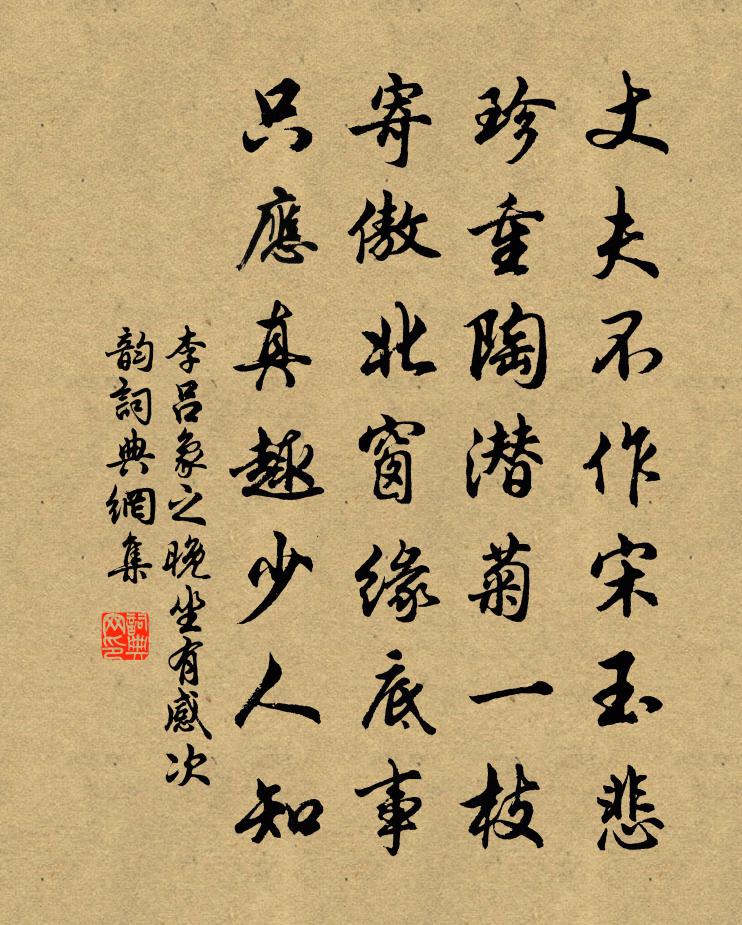 丈夫不作宋玉悲
珍重陶潜菊一枝
寄傲北窗緣底事
只應真趣少人知
李吕象之晚坐有感次
韵詞典網集
詞典網印